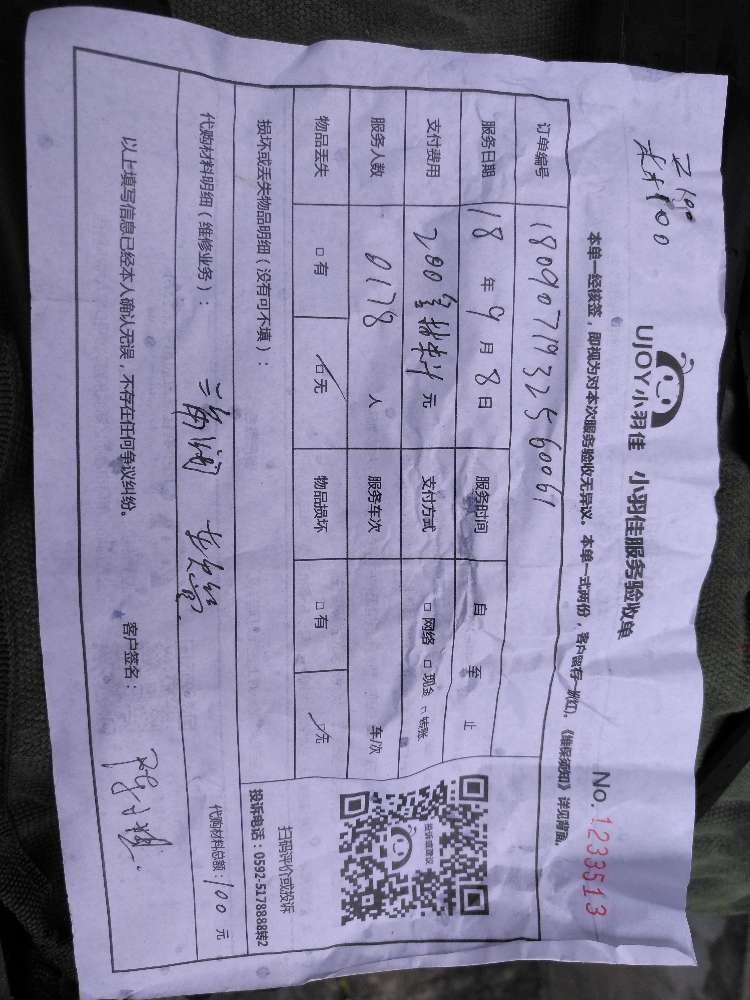 UJOY小羽佳 小羽佳服务验收单
No. 1233513
本单一经核签，即视为对本次服务验收无异议。本单一式两份，客户留存一份(红)。《维保须知》详见背面。
订单编号 1809071932560061
服务日期 18 年 9 月 8 日 服务时间 自 至 止
支付费用 200 元 支付方式 □ 网络 □ 现金 □ 转账
服务人数 0178 人 服务车次 车/次
物品丢失 □ 有 □ 无 物品损坏 □ 有 □ 无
损坏或丢失物品明细（没有可不填）：
投诉或建议
扫码评价或投诉
投诉电话：0592-5178888转2
代购材料明细（维修业务）： 三角阀
代购材料总额：100 元
以上填写信息已经本人确认无误，不存在任何争议纠纷。 客户签名：